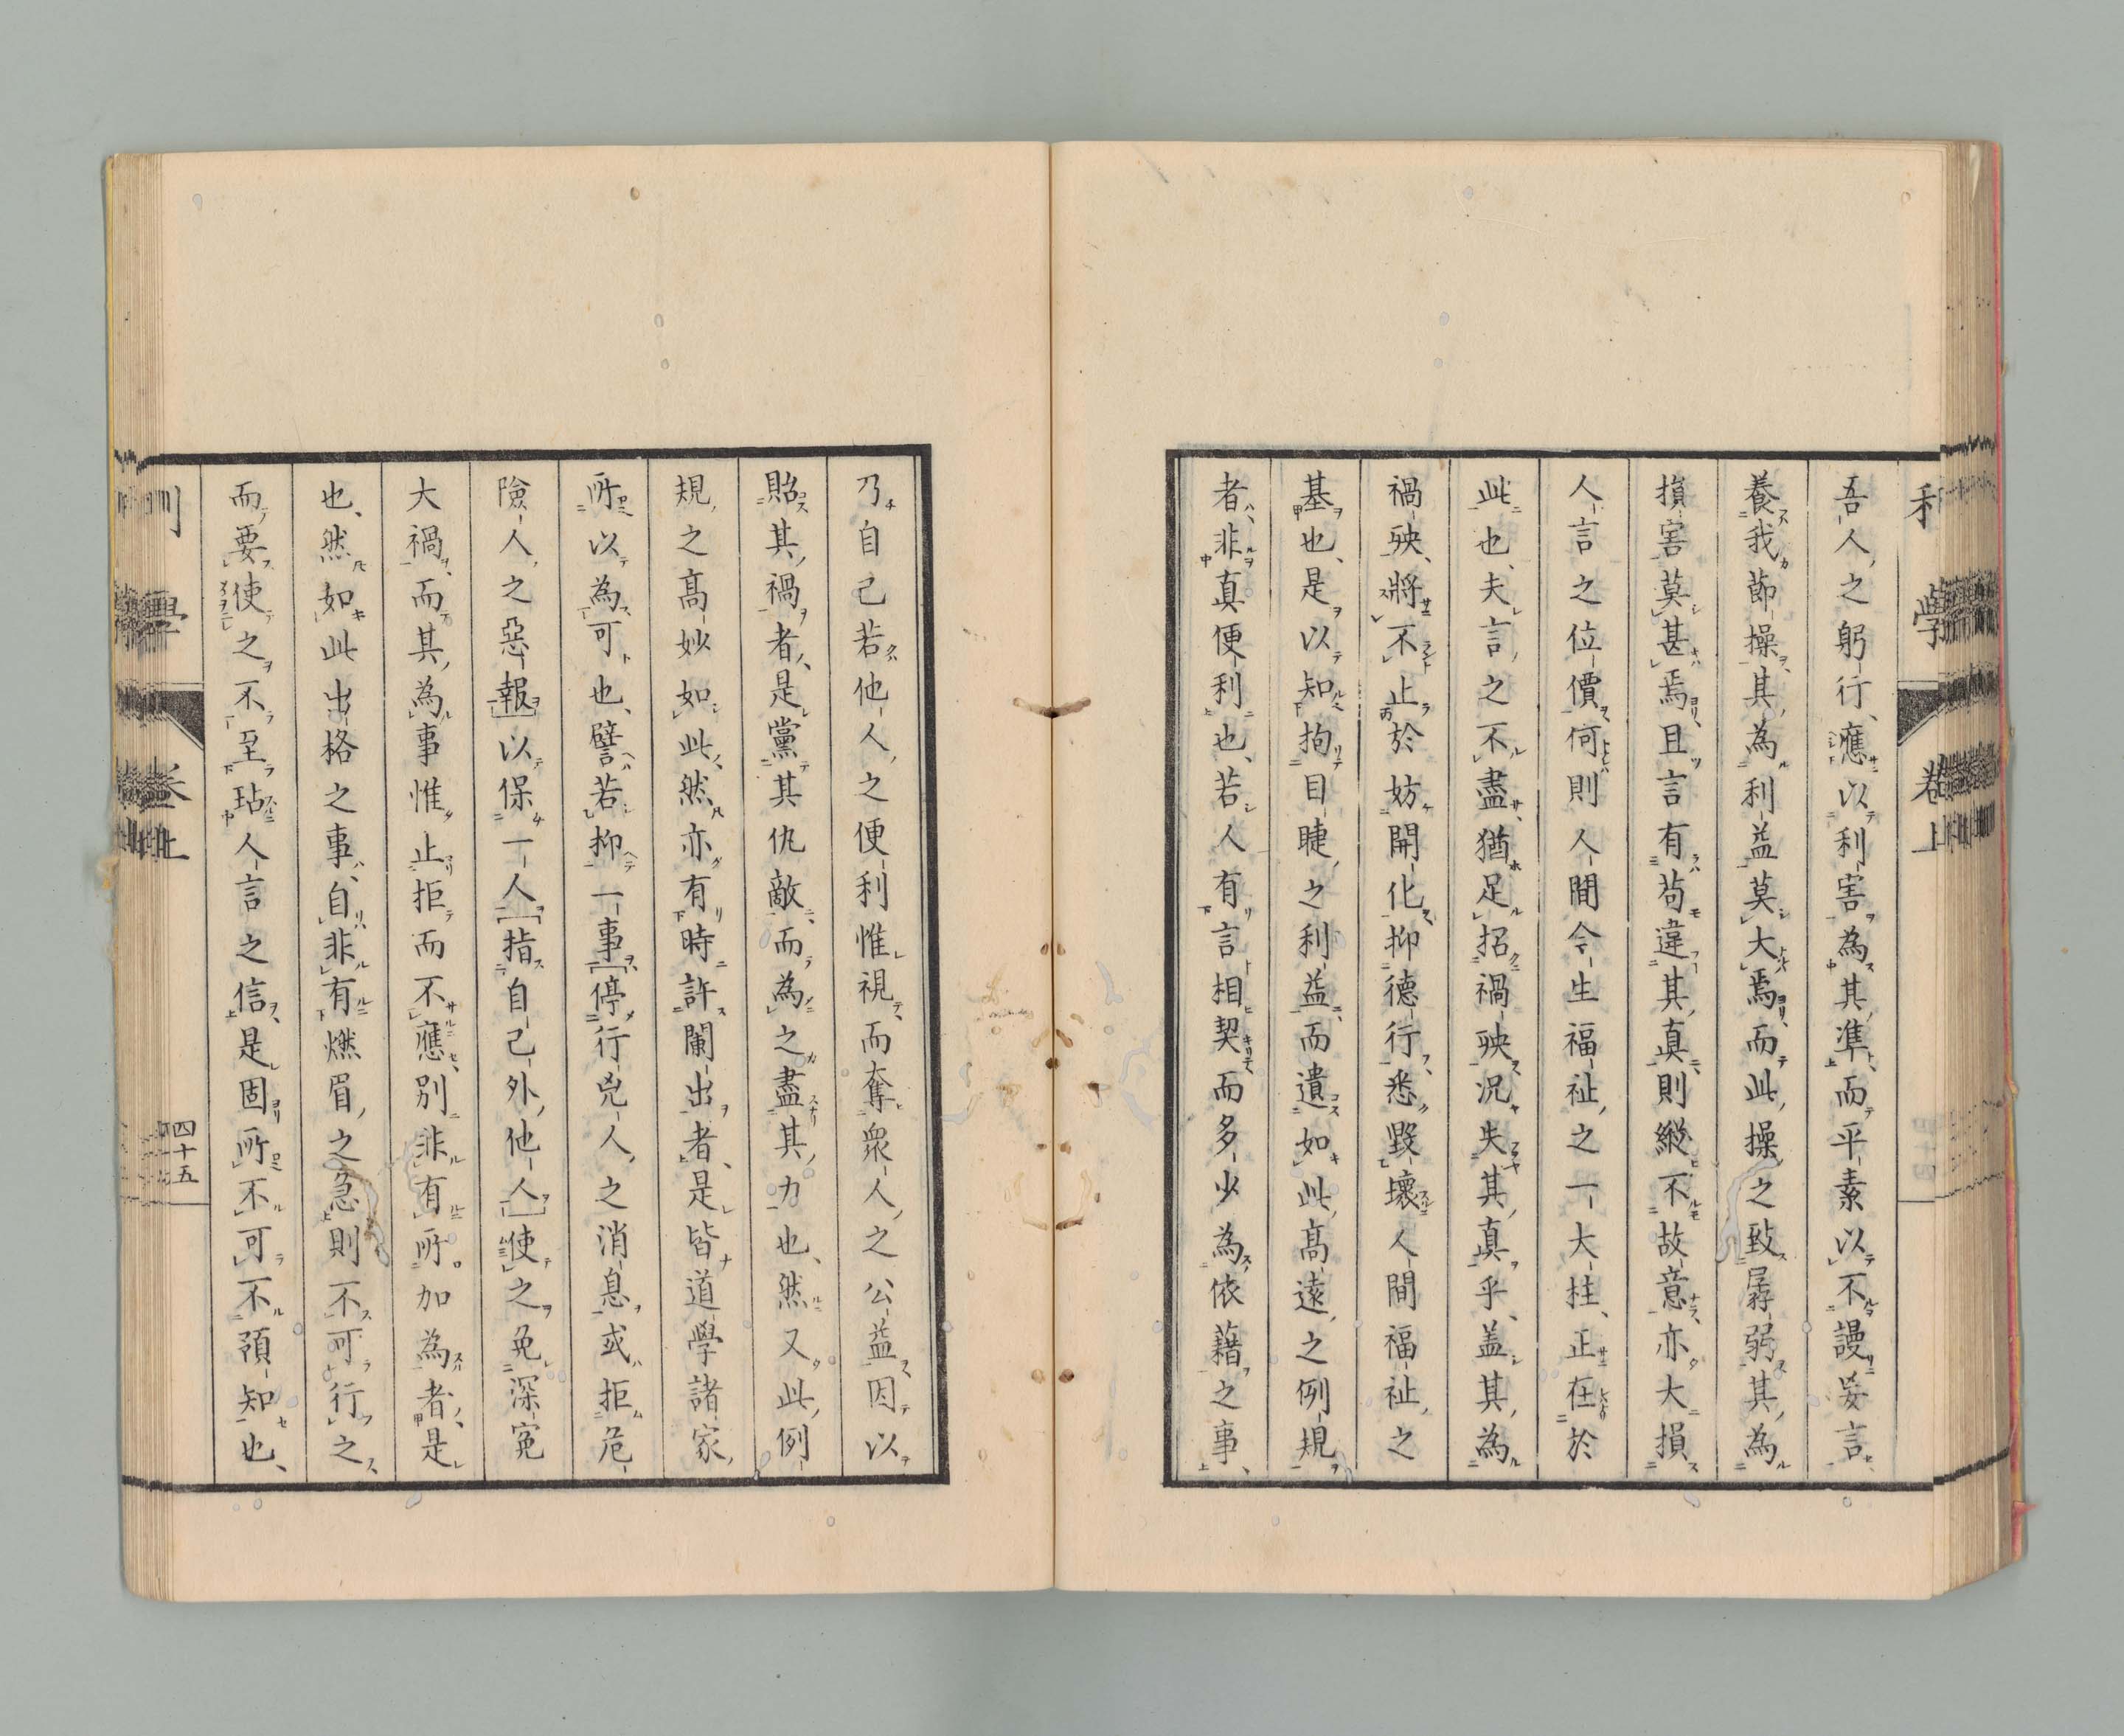 利學 卷上
吾人之躬行、應以利害為其準而平素以不謾妄言
養我節操其為利益莫大焉而此操之致孱弱其為
損害莫甚焉且言有苟違其真則縱不故意亦大損
人言之位價何則人間今生福祉之一大柱、正在於
此也、夫言之不盡猶足招禍殃況失其真乎、盖其為
禍殃、將不止於妨開化抑德行悉毀壞人間福祉之
基也、是以知拘目睫之利益而遺如此高遠之例規
者、非真便利也、若人有言相契而多少為依藉之事、
乃自己若他人之便利惟視而奪衆人之公益因以
貽其禍者、是黨其仇敵而為之盡其力也、然又此例
規之高妙如此然亦有時許闌出者、是皆道學諸家
所以為可也、譬若抑一事停行兇人之消息或拒危
險人之惡報以保一人指自己外他人使之免深冤
大禍、而其為事惟止拒而不應別非有所加為者、是
也、然如此出格之事、自非有燃眉之急則不可行之
而要使之不至玷人言之信是固所不可不預知也、
利學 卷上 四十五